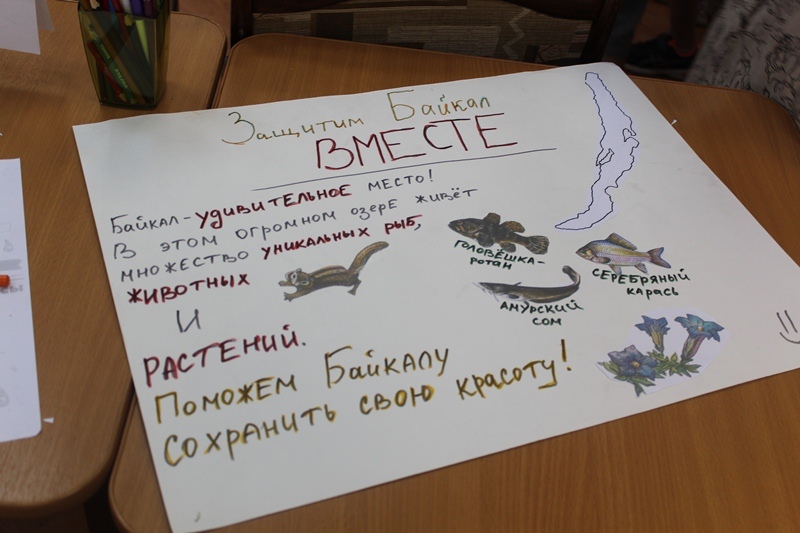 Защитим Байкал
ВМЕСТЕ
Байкал - УДИВИТЕЛЬНОЕ МЕСТО!
В ЭТОМ ОГРОМНОМ ОЗЕРЕ ЖИВЁТ
МНОЖЕСТВО УНИКАЛЬНЫХ РЫБ,
ЖИВОТНЫХ
И
РАСТЕНИЙ.
ПОМОЖЕМ БАЙКАЛУ
СОХРАНИТЬ СВОЮ КРАСОТУ!
ГОЛОВЁШКА-
РОТАН
АМУРСКИЙ
СОМ
СЕРЕБРЯНЫЙ
КАРАСЬ